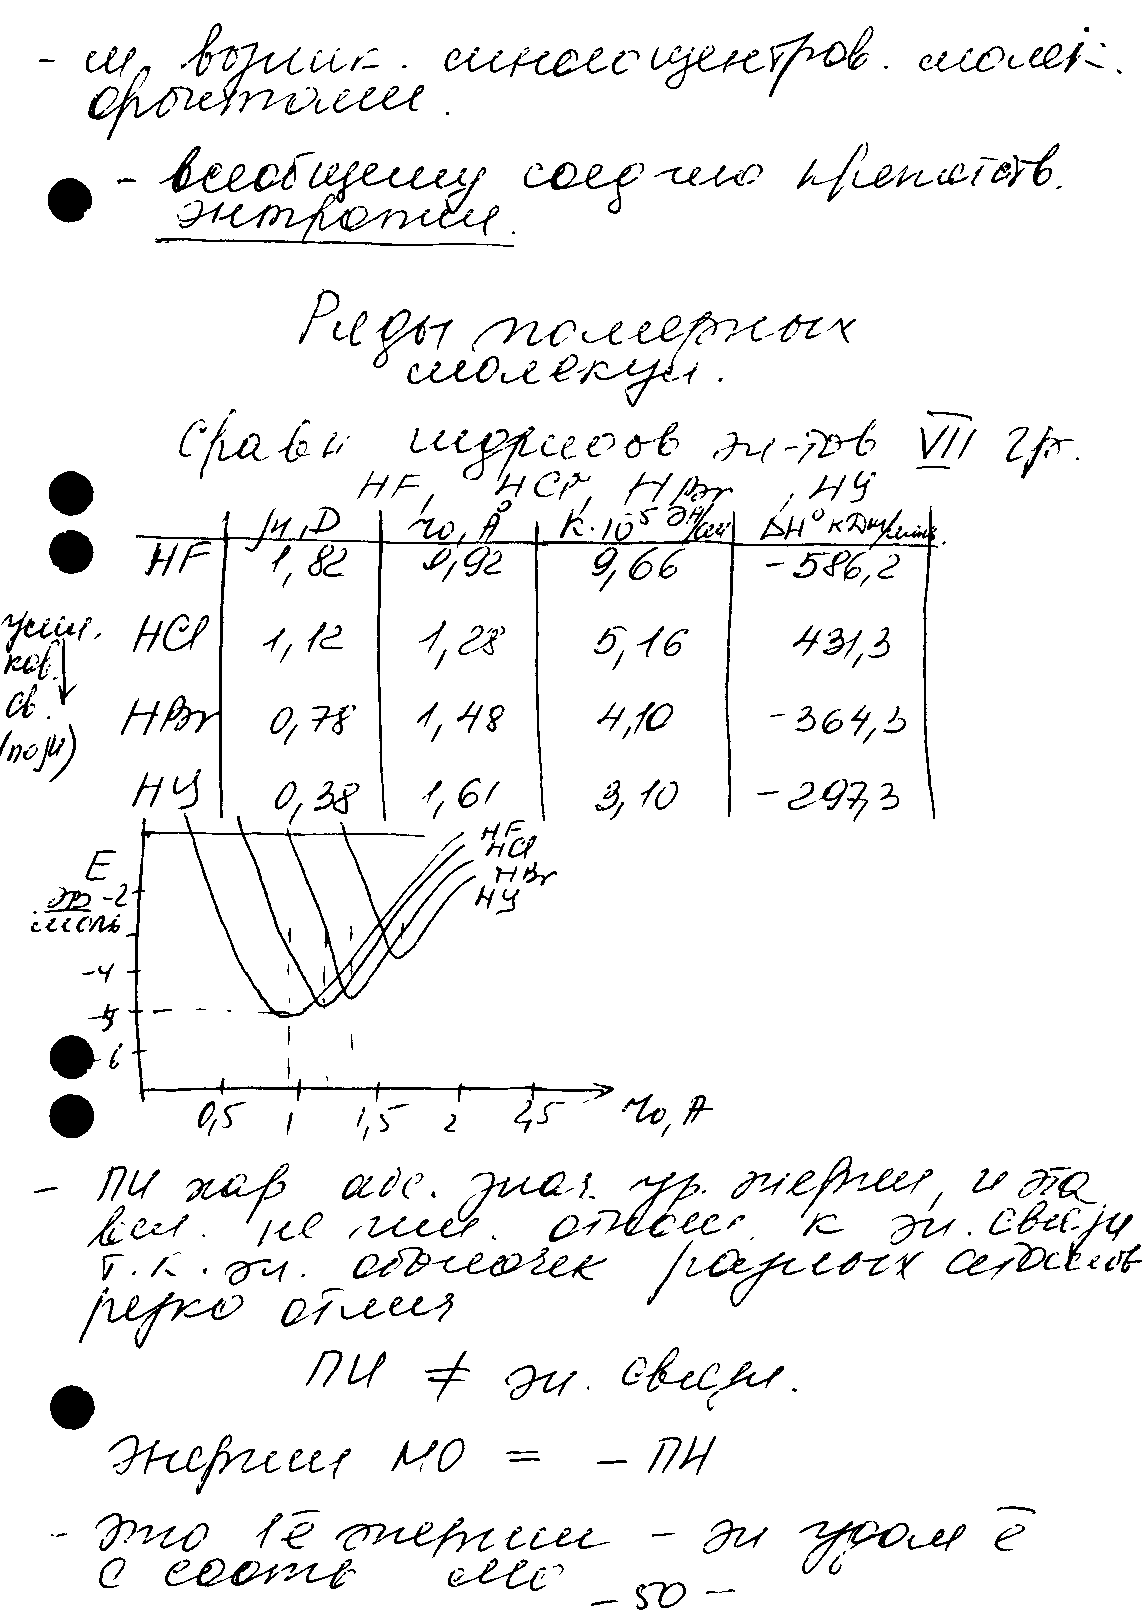 - м. возник. многоцентров. молек.
орбитали.
- всеобщему соед-нию препятств.
энтропия.
Ряды полярных
молекул.
Сравн гидридов эл-тов VII гр.
HF, HCl, HBr, HY
μ, D r₀, Å K·10⁵ дн/см ΔH⁰ кДж/моль
HF 1,82 0,92 9,66 -586,2
HCl 1,12 1,28 5,16 431,3
HBr 0,78 1,48 4,10 -364,3
HY 0,38 1,61 3,10 -297,3
усил.
ков.
св.
(по μ)
HF
HCl
HBr
HY
E
эв
моль
-2
-4
-5
-6
0,5 1 1,5 2 2,5 r₀, A
- ПИ хар абс. знач. ур. энергии, и эта
вел. не им. отнош. к эн. связи
т.к. эл. оболочек разных атомов
резко отлич
ПИ ≠ эн. связи.
Энергии МО = - ПИ
- это 1ē энергии - эн удал ē
с соотв МО
- 50 -